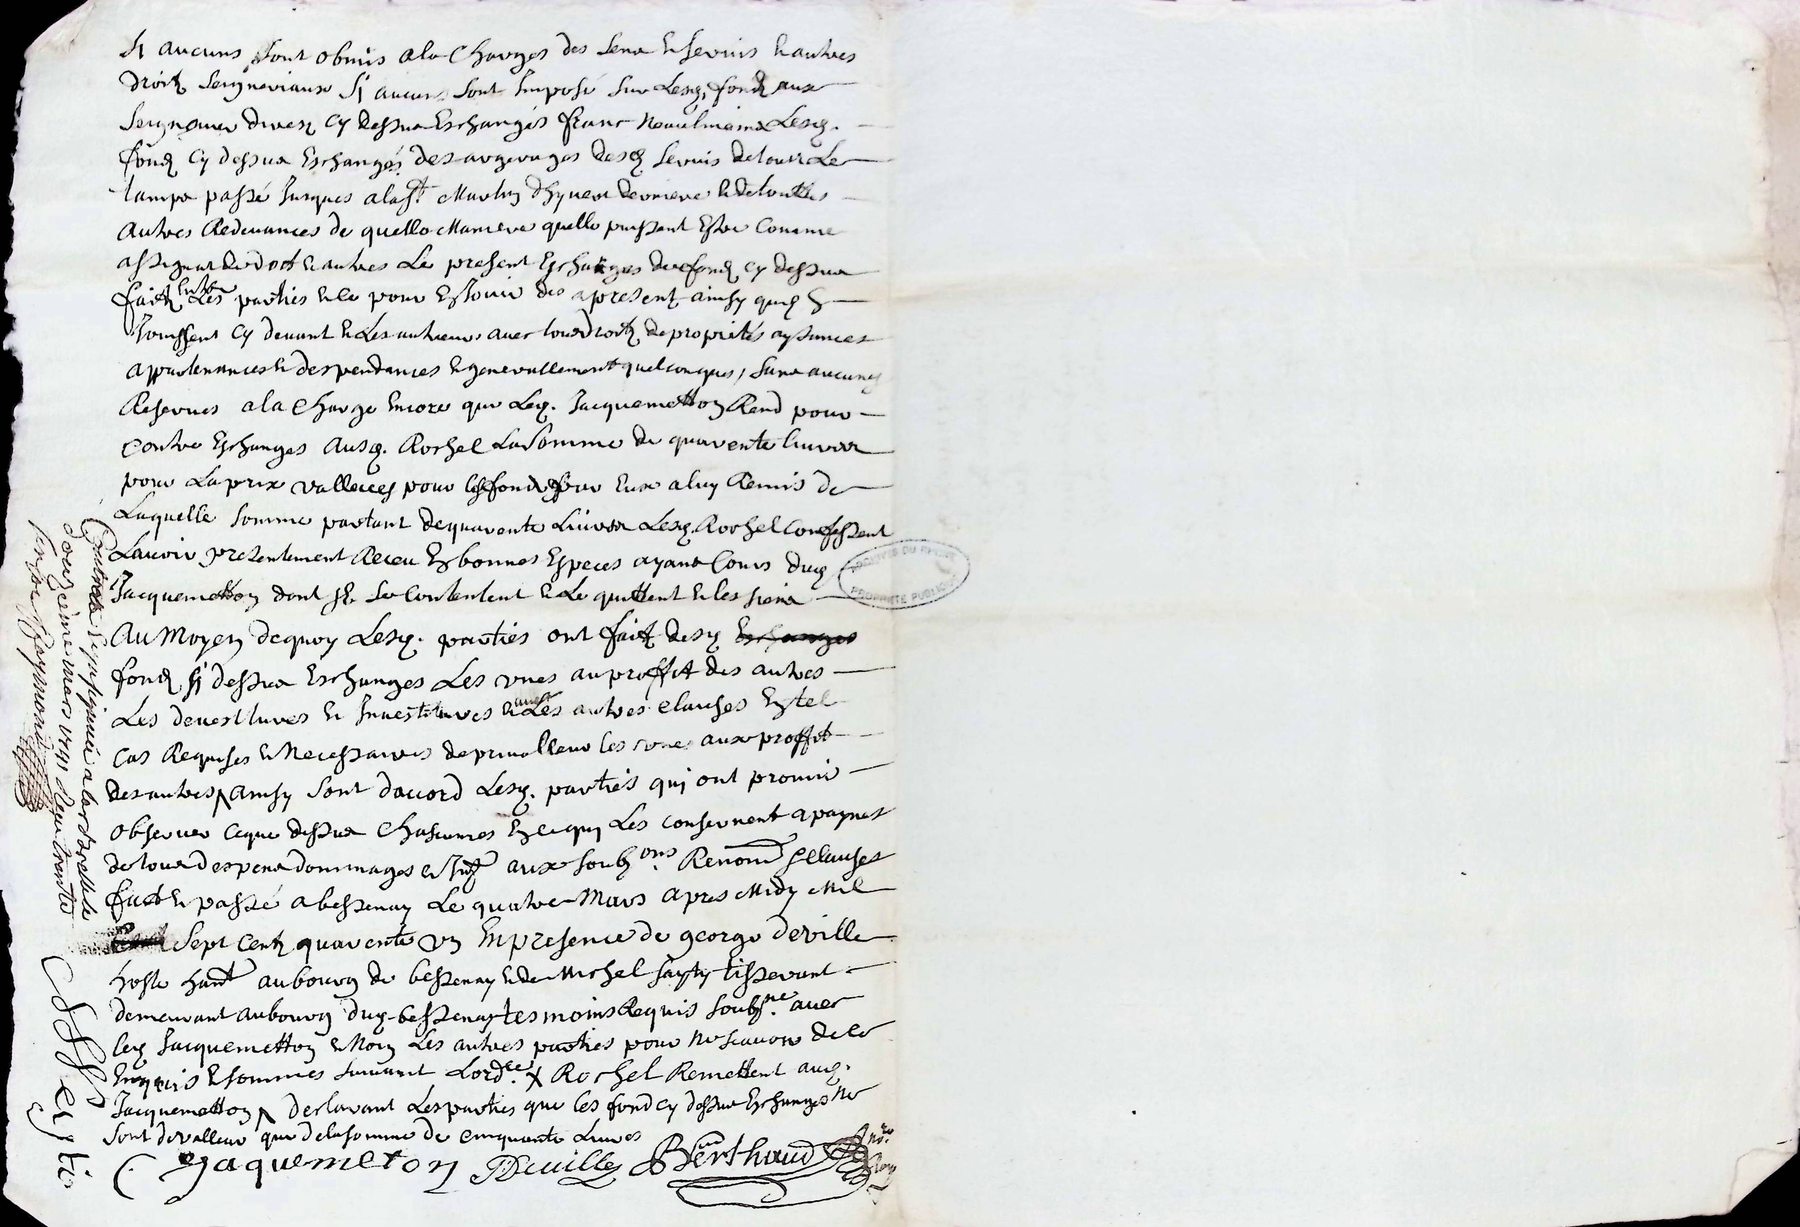 si aucuns sont obmis a la Charges des sens & servis & autres
droitz seigneuriaux si aucuns sont Imposé sur lesq. fondz aux
seigneurs divers cy dessus Eschangés franc neaulmoins Lesq.
fondz cy dessus Eschangés des arrerages desq servis de tout Le
temps passé Jusques a la St Martin d'hyuer derniere & de touttes
autres Redeuances de quelle Maniere quelle puissent Estre Comme
assignat de dot & autres Le present Eschanges de fondz cy dessus
faitz entre Les parties & ce pour En Jouir des a present ainsy quilz En
Jouissent cy deuant & Les autheurs auec tous droitz de proprietés aysances
appartenances & despendances & generallement quelconques, sans aucunes
Reserues a la Charge Encore que Leq. Jacquemetton Rend pour
contre Eschanges ausq. Rochel La somme de quarente liures
pour La prix valleues pour les fondz par Eux a luy Remis de
Laquelle somme partant de quarente Liures Lesq. Rochel Confessent
Lauoir presentement Receu En bonnes Especes ayant Cours duq
Jacquemetton dont Ilz se Contentent & Le quittent & les siens
Au Moyen de quoy Lesq. parties ont faitz desq Eschanges
fondz si dessus Eschanges Les unes au proffit des autres
Les deuestitures & Inuestitures & auec Les autres clauses En tel
cas Requises & Necessaires de priualleur les unes aux proffit
des autres ainsy sont dacord Lesq. parties qui ont promis
obseruer ce que dessus Chascunes En ce qui Les conserment a paynes
de tous despens dommages & Intz aux soubz ons Renond & Clauses
fait & passé a bessenay Le quatre Mars apres Midy Mil
sept centz quarente un En presence de george deville
hoste hant au bourg de bessenay & de Michel tisserant
demeurant au bourg duq bessenay tesmoins Requis soubs.né auec
leq Jacquemetton & Moy Les autres parties pour ne scauoir de ce
Enquis & sommes suiuant Lord.ce Rochel Remettent auq.
Jacquemetton declarant Les parties que les fond cy dessus Eschanges ne
sont de valleur que de la somme de cinquante Liures
Jaquemeton Deuille Berthaud
Controllé & Insinué a larbresle le
douzieme mars 1741 Receu trente
ARCHIVES DU RHÔNE
PROPRIÉTÉ PUBLIQUE